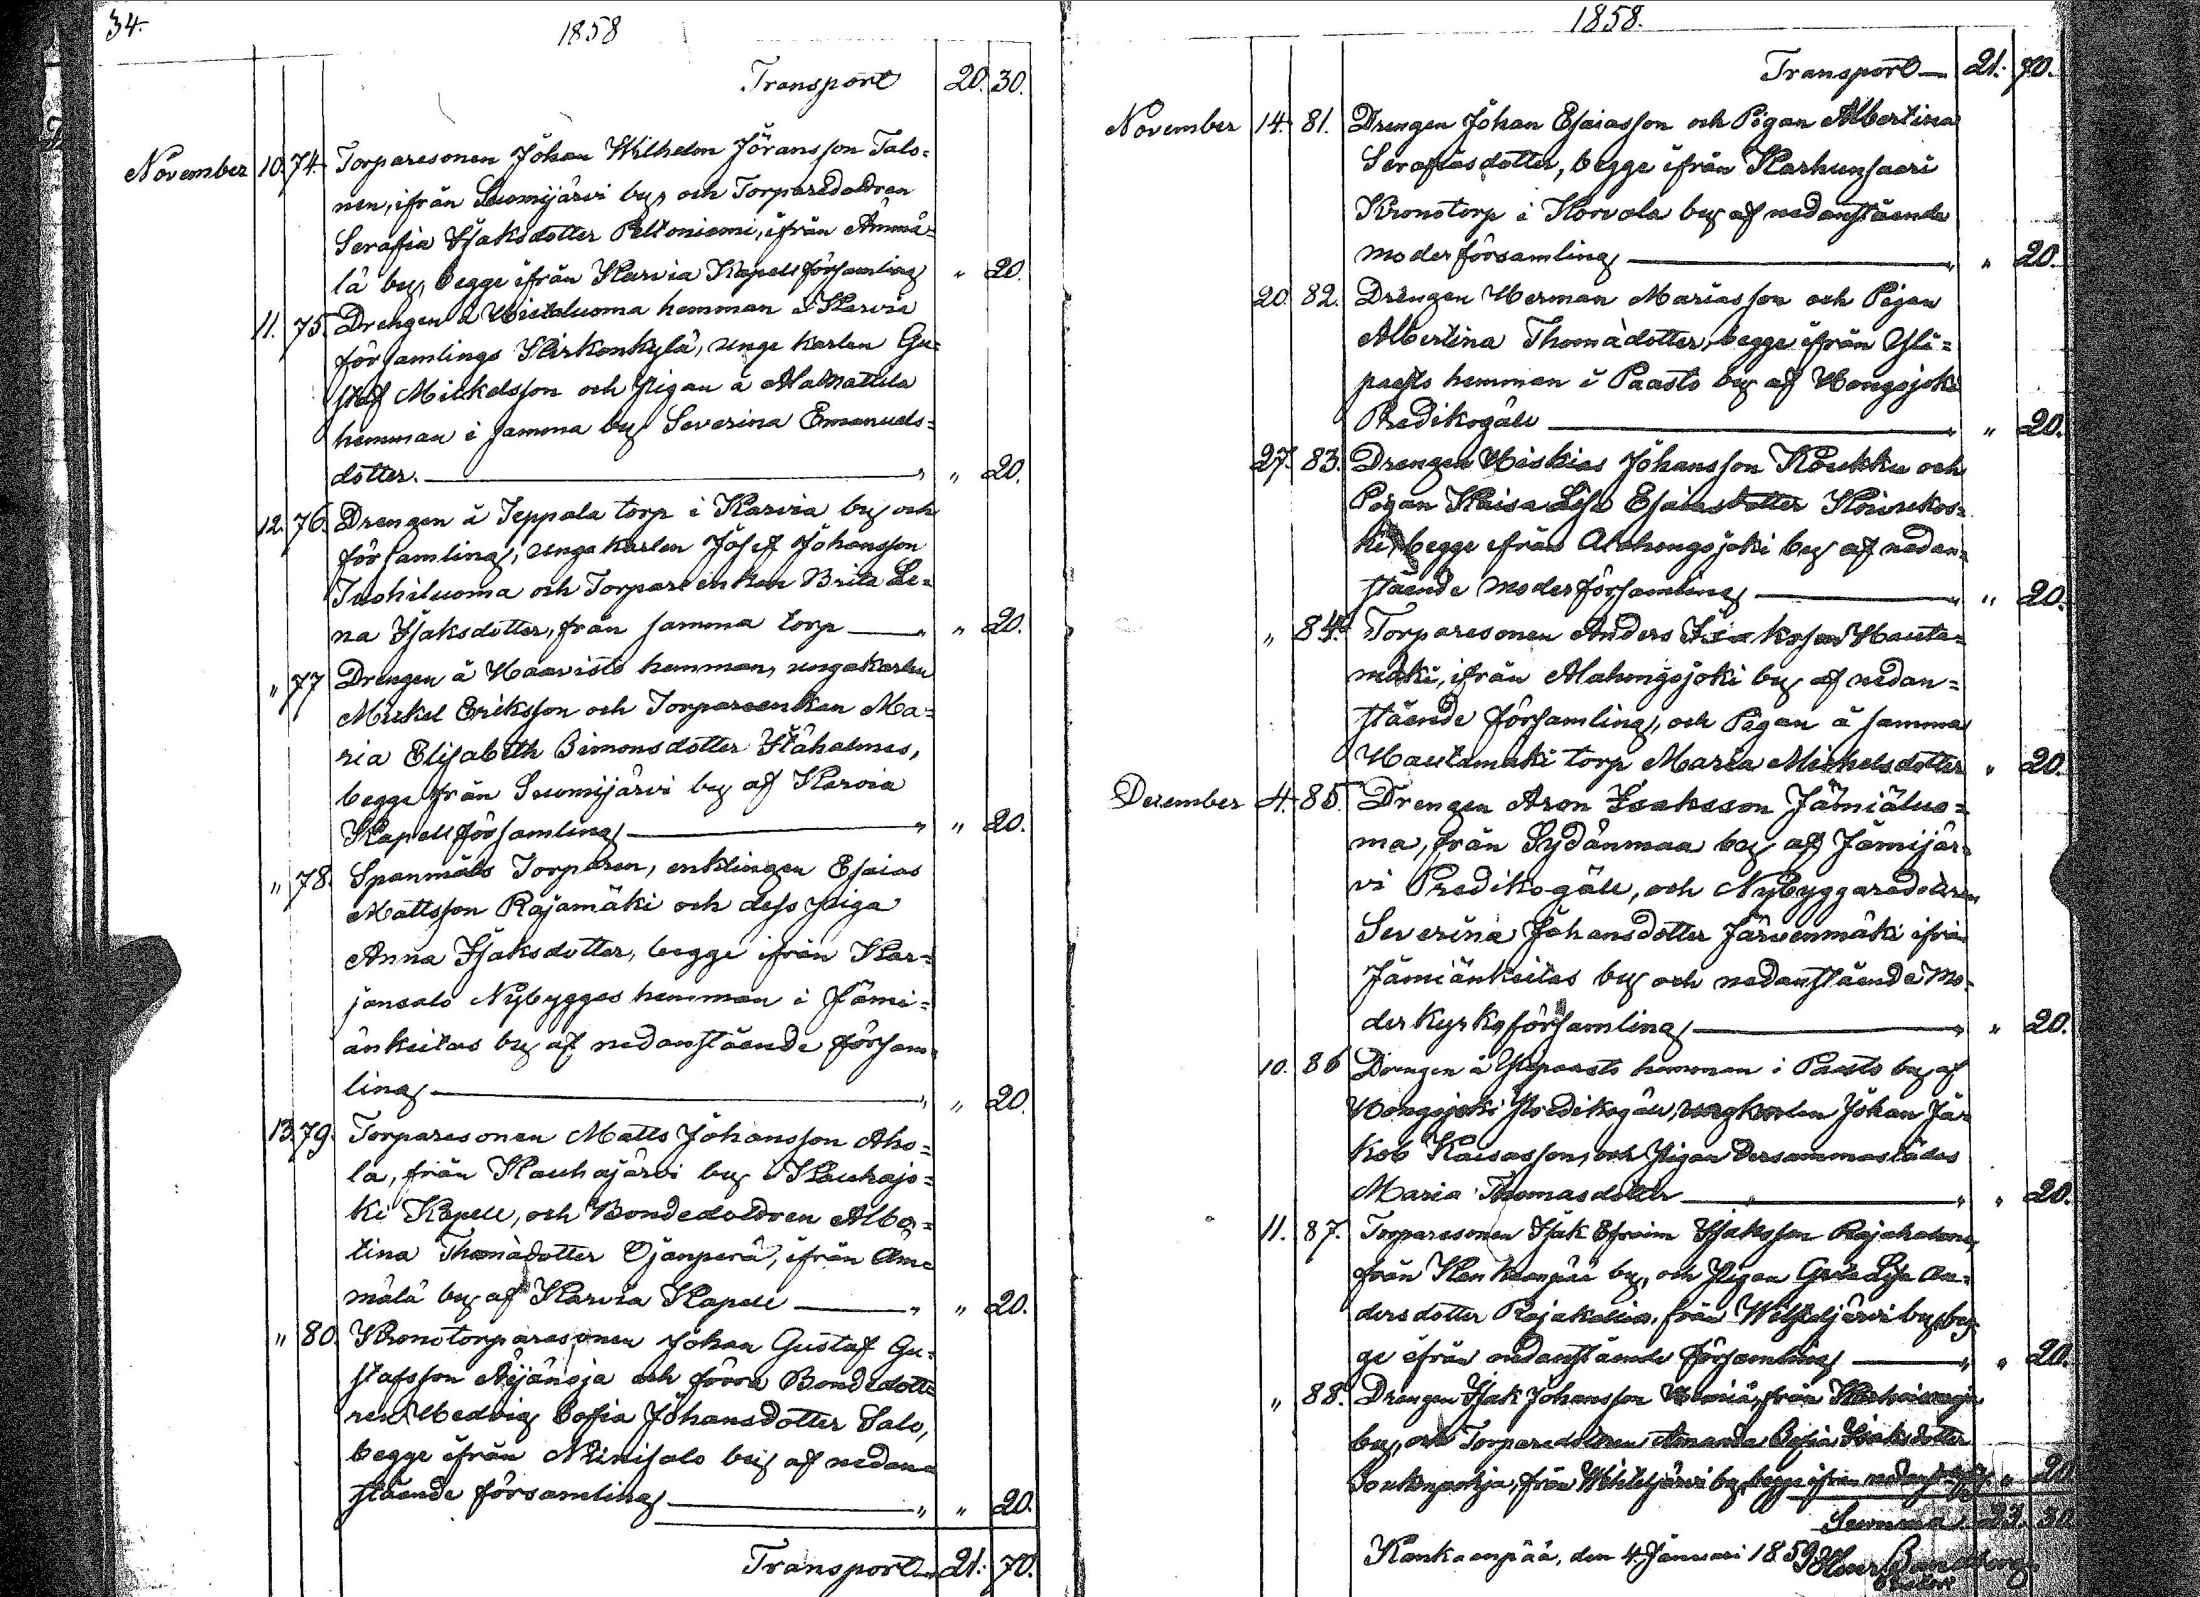 34.
1858
Transport 20. 30.
November 10. 74. Torparesonen Johan Wilhelm Jöransson Talo=
nen, ifrån Suomijärvi by, och Torparedottren
Serafia Isaksdotter Peltoniemi, ifrån Ämmä=
lä by, begge ifrån Karvia Kapellförsamling " 20.
11. 75. Drengen å Wietaluoma hemman i Karvia
församlings Kirkonkylä, unge karlen Gu=
staf Mickelsson och pigan å Alamattila
hemman i samma by Severina Emanuels=
dotter. " " 20.
12. 76. Drengen å Jeppala torp i Karvia by och
församling, unga karlen Josef Johansson
Tuohiluoma och Torpareenkan Brita Le=
na Isaksdotter, från samma torp " " 20.
" 77 Drengen å Haavisto hemman, ungakarlen
Mickel Eriksson och Torpareenkan Ma=
ria Elisabeth Simonsdotter Ståhalmes,
begge från Suomijärvi by af Karvia
Kapellförsamling " " 20.
" 78. Spanmåls Torparen, enklingen Esaias
Mattsson Rajamäki och dess piga
Anna Isaksdotter, begge ifrån Kar=
jansalo Nybygges hemman i Jämi=
änkeitas by af nedanstående försam=
ling " " 20.
13. 79. Torparesonen Matts Johansson Aho=
la, från Kauhajärvi by i Kauhajo=
ki Kapell, och Bondedottren Alber=
tina Thomädotter Ojanperä, ifrån Äm=
mälä by af Karvia Kapell " " 20.
" 80. Kronotorparesonen Johan Gustaf Gu=
stafsson Äijänoja och förra Bondedott=
ren Hedvig Sofia Johansdotter Salo,
begge ifrån Niinisalo by af nedan=
stående församling " " 20.
Transport 21. 70.
1858.
Transport 21. 70.
November 14. 81. Drengen Johan Esaiasson och Pigan Albertina
Serafiasdotter, begge ifrån Karhunsaari
Kronotorp i Korvola by af nedanstående
moderförsamling " " 20.
20. 82. Drengen Herman Mariasson och Pigan
Albertina Thomädotter, begge ifrån Yli=
paasto hemman i Paasto by af Hongojoki
Predikogäll " " 20.
27. 83. Drengen Hiskias Johansson Koukku och
Pigan Kaisa Lisa Esaiasdotter Koivukos=
ki, begge ifrån Alahongojoki by af nedan=
stående moderförsamling " " 20.
" 84. Torparesonen Anders Isaksson Hauta=
mäki, ifrån Alahongojoki by af nedan=
stående församling, och Pigan å samma
Hautamäki torp Maria Michelsdotter " 20.
December 4. 85. Drengen Aron Isaksson Jämiäluo=
ma, från Sydänmaa by af Jämijär=
vi Predikogäll, och Nybyggaredottren
Severina Johansdotter Järvenmäki ifrån
Jämiänkeitas by och nedanstående Mo=
derkyrkoförsamling " " 20.
10. 86 Drengen å Ylipaasto hemman i Paasto by af
Hongojoki predikogäll, ungkarlen Johan Ja=
kob Kaisasson, och Pigan dersammastädes
Maria Thomasdotter " " 20.
11. 87. Torparesonen Isak Efraim Isaksson
från Kankaanpää by, och Pigan Greta Lisa An=
dersdotter Rajakallio, från Wihteljärvi by, beg=
ge ifrån nedanstående församling " " 20.
" 88. Drengen Isak Johansson från
by, och Torparedottren Amanda Sofia Isaksdotter
från Wihteljärvi by, begge ifrån " 20.
Summa 23. 30.
Kankaanpää, den 4. Januari 1859.